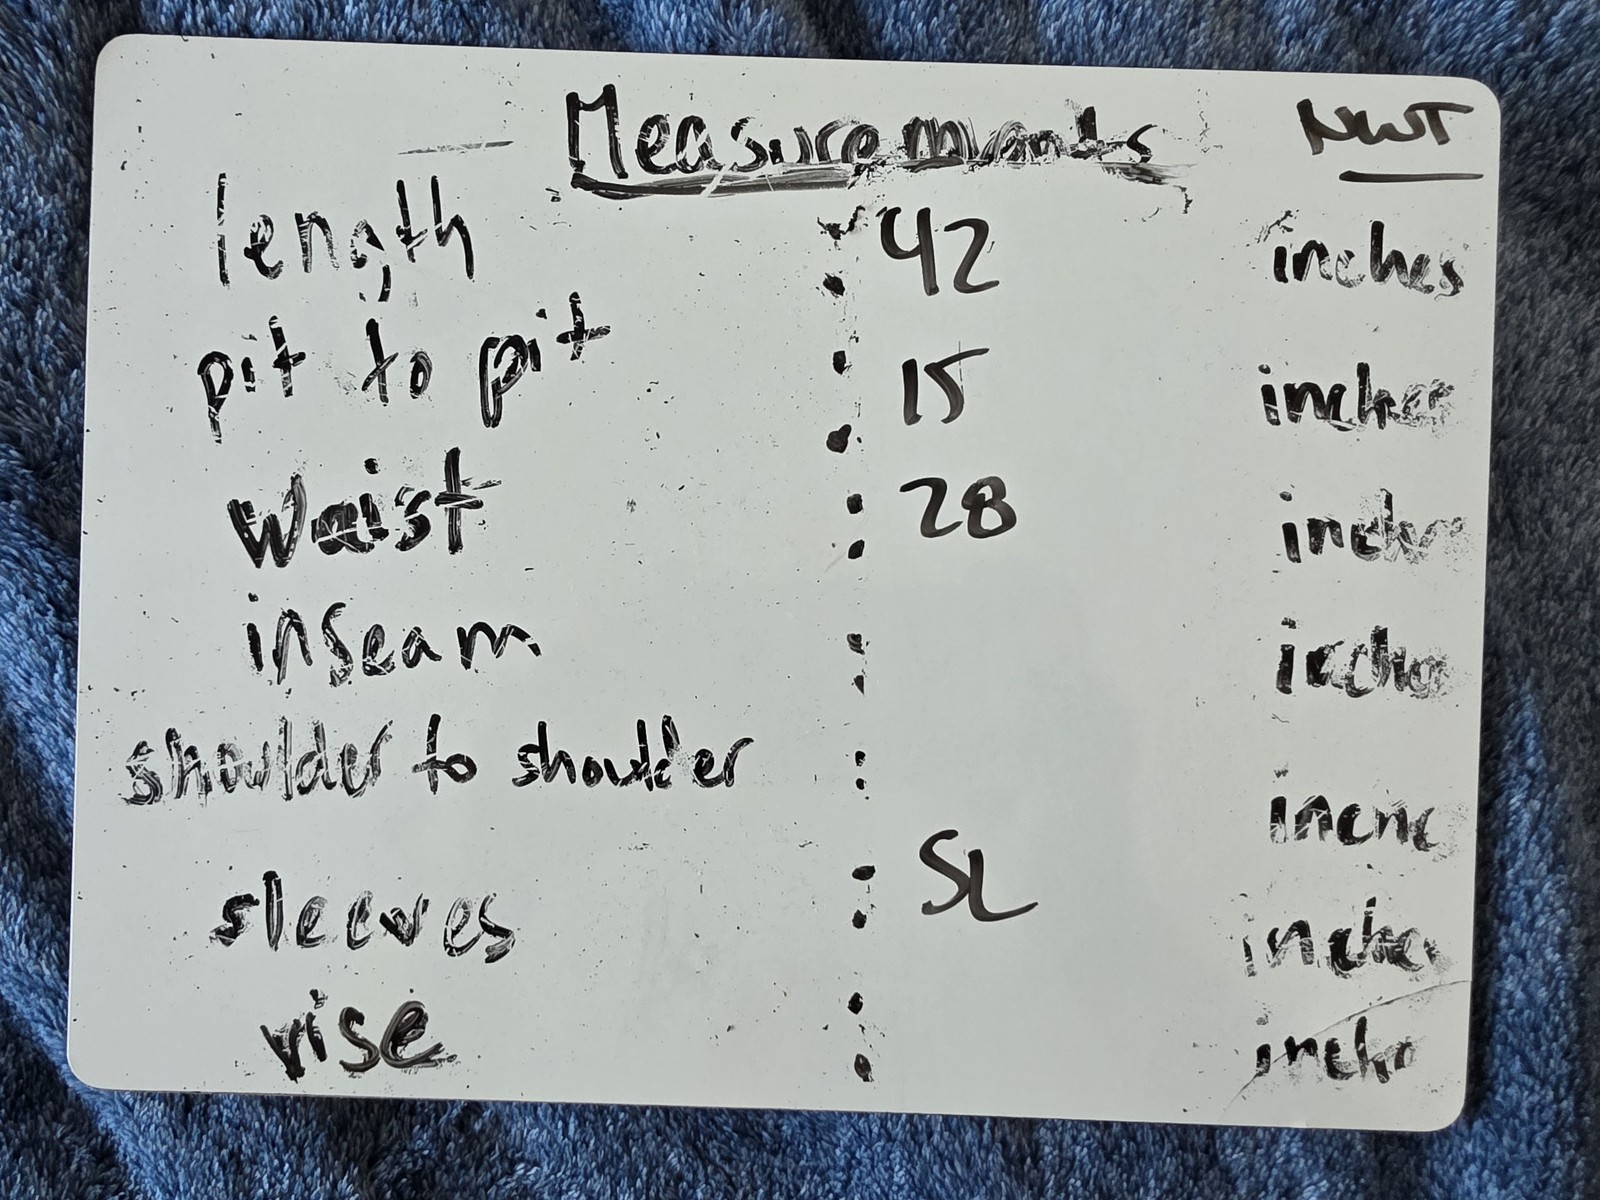 Measurements NWT
length : 42 inches
pit to pit : 15 inches
waist : 28 inches
inseam : inches
shoulder to shoulder : inche
sleeves : SL inches
rise : inche